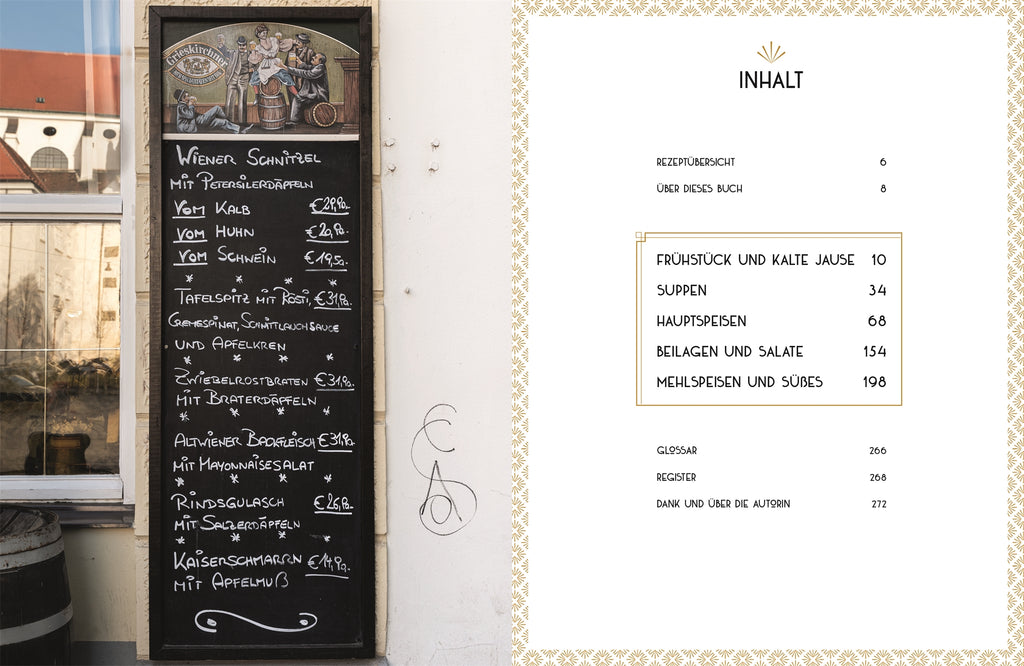 Grieskirchner
WIENER SCHNITZEL
MIT PETERSILERDÄPFELN
VOM KALB €29,90.-
VOM HUHN €20,90.-
VOM SCHWEIN €19,50.-
TAFELSPITZ MIT RÖSTI, €31,90.-
CREMESPINAT, SCHNITTLAUCHSAUCE
UND APFELKREN
ZWIEBELROSTBRATEN €31,90.-
MIT BRATERDÄPFELN
ALTWIENER BACKFLEISCH €31,90.-
MIT MAYONNAISESALAT
RINDSGULASCH €26,90.-
MIT SALZERDÄPFELN
KAISERSCHMARRN €14,90.-
MIT APFELMUß
INHALT
REZEPTÜBERSICHT 6
ÜBER DIESES BUCH 8
FRÜHSTÜCK UND KALTE JAUSE 10
SUPPEN 34
HAUPTSPEISEN 68
BEILAGEN UND SALATE 154
MEHLSPEISEN UND SÜẞES 198
GLOSSAR 266
REGISTER 268
DANK UND ÜBER DIE AUTORIN 272